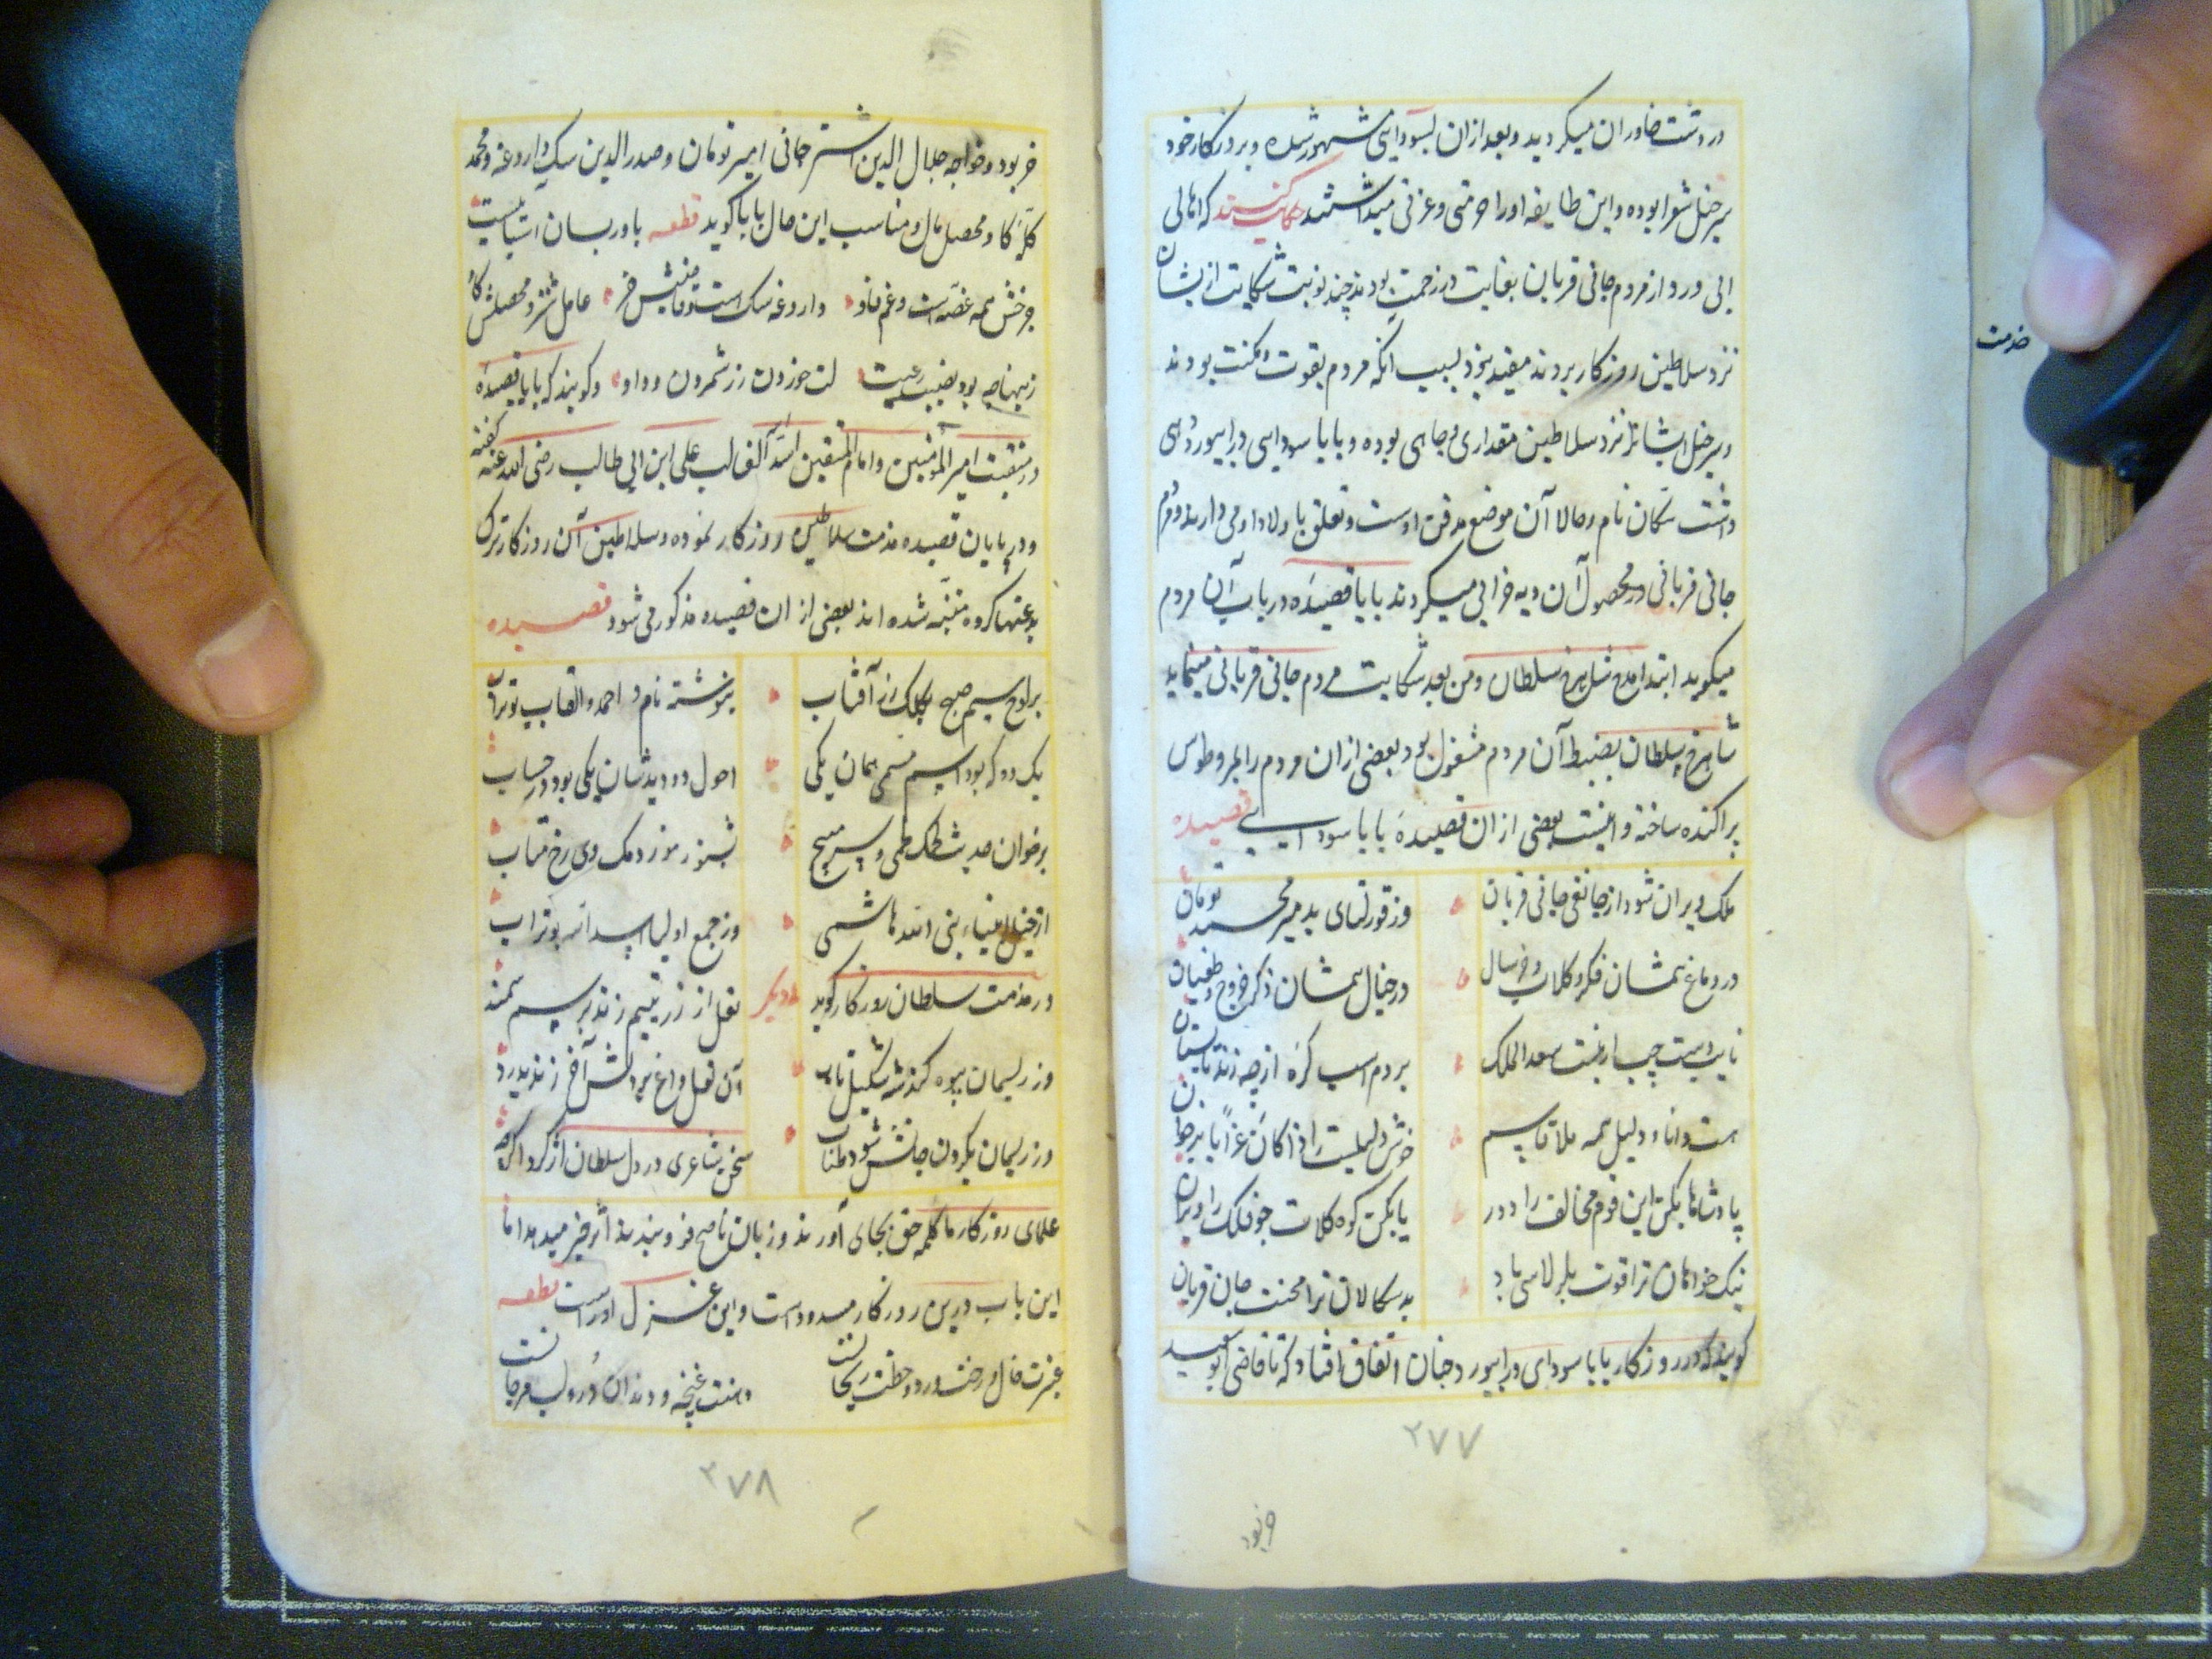 در دشت خاوران میکردید و بعد ازان بسودایی مشهور شده و بروزکار خود
سرخیل شعرا بوده و این طایفه اورا حرمتی و عزتی میداشتند حکایت کنند که اهالی
ابی ورد از مردم جانی قربان بغایت در زحمت بودند چند نوبت شکایت ازیشان
نزد سلاطین روزکار بردند مفید نبود بسبب آنکه مردم بقوت و مکنت بودند
و سرخیل ایشانرا نزد سلاطین مقداری و جاهی بوده و بابا سودایی در ابیورد دهی
داشت سکان نام و حالا آن موضع مدفن اوست و تعلق باولاد او می دارد و مردم
جانی قربانی در محصول آن دیه خرابی میکردند بابا قصیدهٔ در باب آن مردم
میکوید ابتدا مدح شاهرخ سلطان و من بعد شکایت مردم جانی قربانی مینماید
شاهرخ سلطان بضبط آن مردم مشغول بود بعضی ازان مردم را بمرو و طوس
پراکنده ساخته و اینست بعضی ازان قصیدهٔ بابا سودایی قصیده
ملک ویران شود از جانقی جانی قربان
وز قورلتای بد میر محمد تومان
در دماغ همشان فکر کلات و خرسال
در خیال همشان ذکر خروج و طغیان
نایب دست چپ ار نیست سعدالملک
بر دم اسب کره از چه زند تابستان
هست دانا و دلیل همه ملا قاسم
خوش دلیلیست
پادشاها بکن این قوم مخالف را دور
یا بکن کوه کلات چو فلک را ویران
نیک خواهان ترا قوت برلاسی باد
بدسکالان ترا محنت جان قربان
کویند که در روزکار بابا سودای در ابیورد چنان اتفاق افتاد که تا قاضی ابوسعید
خدمت
۲۷۷
خر بود و خواجه جلال الدین اشتر جانی امیر تومان و صدر الدین سک داروغه و محمد
کله کاو محصل مال و مناسب این حال بابا کوید قطعه باورد بسان آسیابیست
چرخش همه غصه است و غم ناو داروغه سک است و قاضیش خر عامل شتر و محصلش کاو
زینها چه بود نصیب رعیت لت خوردن زر شمردن و داو و کویند که بابا قصیدهٔ
در منقبت امیر المؤمنین و امام المتقین اسد الله الغالب علی ابن ابی طالب رضی الله عنه گفته
و در پایان قصیده مذمت سلاطین روزکار نموده و سلاطین آن روزکار ترک
بدعتها کرده متنبه شده اند بعضی از ان قصیده مذکور می شود قصیده
بر لوح سیم صبح بکلک زر آفتاب
بنوشته نام احمد و القاب بوتراب
یک دو که بود اسم مسمی همان یکی
احول دو دید شان یکی بود در حساب
برخوان حدیث لحمک لحمی و سر مپیچ
بشنو رموز دمک دمی رخ متاب
از خیل انبیاء نبی الله هاشمی
وز جمع اولیا اسد الله بوتراب
در مذمت سلطان روزکار کوید
و دیکر نعل از زر یتیم زند بر سم سمند
وز ریسمان بیوه کند شه شکیل تاب
آن نعل داغ بر دلش آخر زند بدرد
وز ریسمان بکردن جانش شود طناب
سخن شاعری در دل سلطان اثر کرد اکر
علمای روزکار ما کلمهٔ حق بجای آورند و زبان ناصح فرو نبندند اثر خیر میدهد اما
این باب درین روزکار مسدودست و این غزل اوراست قطعه
عنبرت خال و رخت ورد و خطت ریحانست
دهنت غنچه و دندان در و لب مرجانست
۲۷۸